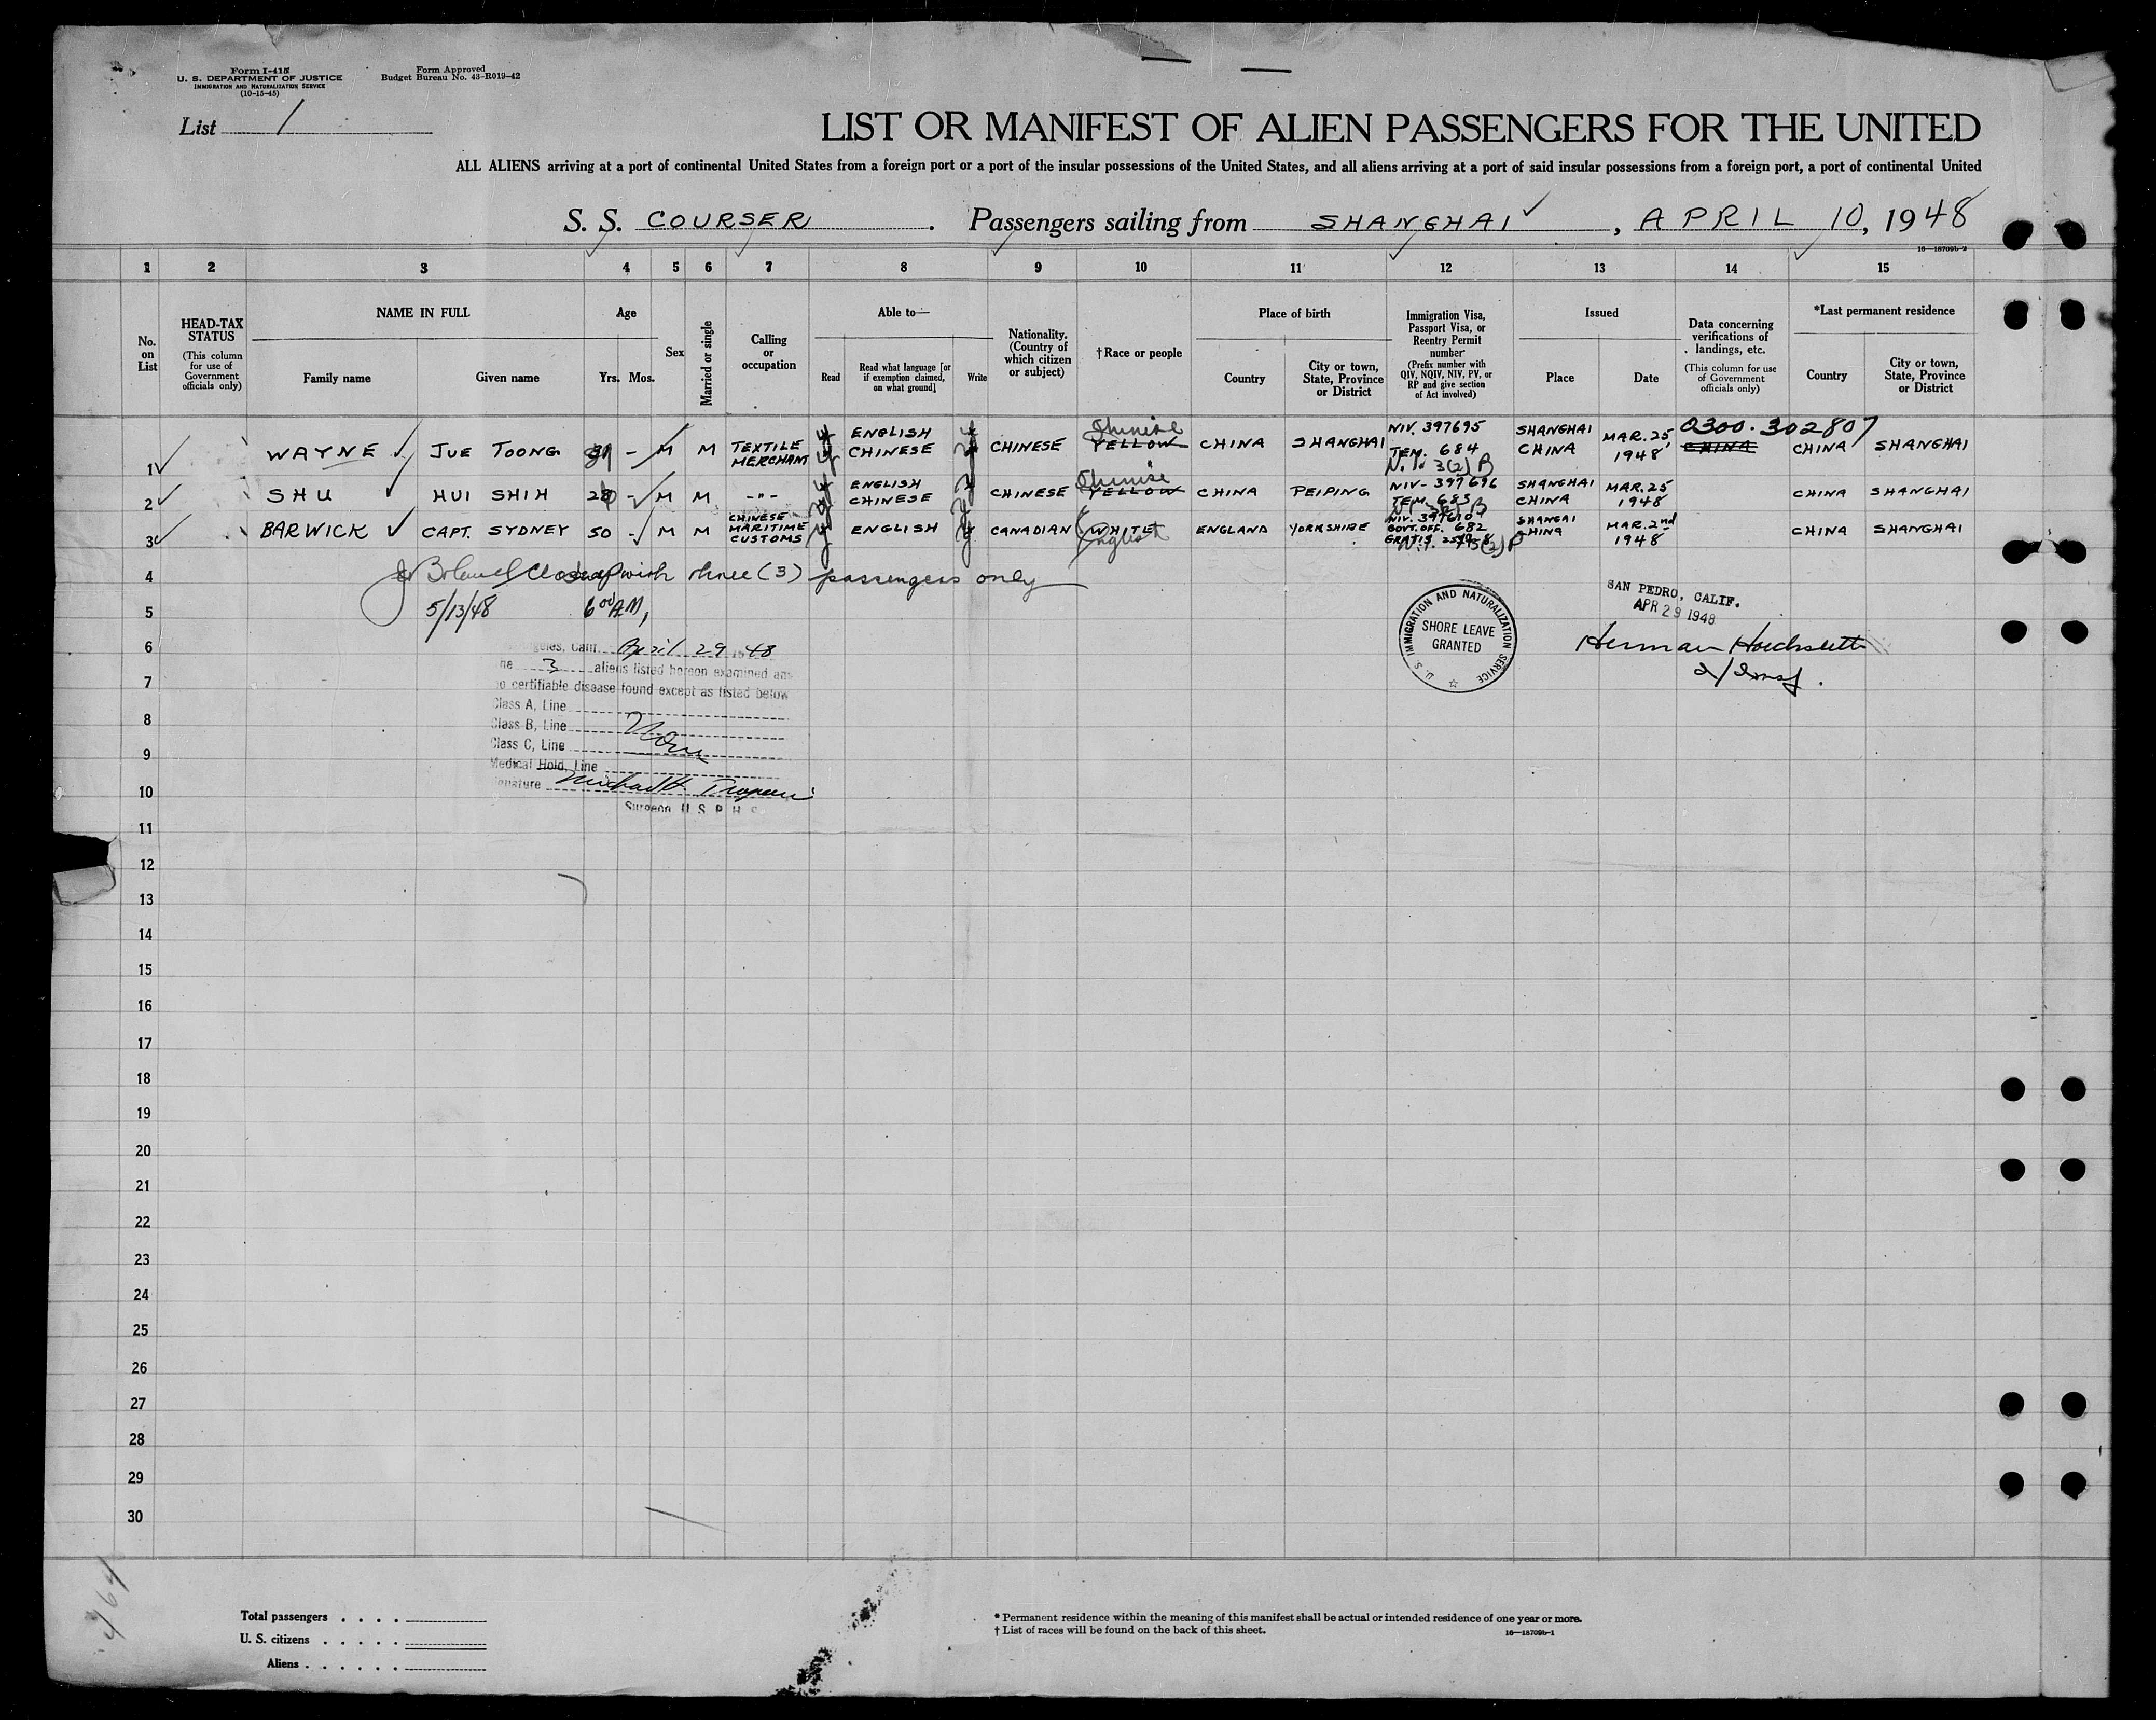 Form I-415
U. S. DEPARTMENT OF JUSTICE
IMMIGRATION AND NATURALIZATION SERVICE
(10-15-45)
Form Approved
Budget Bureau No. 43-R019-42
List 1
LIST OR MANIFEST OF ALIEN PASSENGERS FOR THE UNITED
ALL ALIENS arriving at a port of continental United States from a foreign port or a port of the insular possessions of the United States, and all aliens arriving at a port of said insular possessions from a foreign port, a port of continental United
S. S. COURSER. Passengers sailing from SHANGHAI, APRIL 10, 1948
16—18709b-2
1 2 3 4 5 6 7 8 9 10 11 12 13 14 15
No. on List
HEAD-TAX STATUS
(This column for use of Government officials only)
NAME IN FULL
Family name
Given name
Age
Yrs. Mos.
Sex
Married or single
Calling or occupation
Able to—
Read
Read what language [or if exemption claimed, on what ground]
Write
Nationality. (Country of which citizen or subject)
†Race or people
Place of birth
Country
City or town, State, Province or District
Immigration Visa, Passport Visa, or Reentry Permit number
(Prefix number with QIV, NQIV, NIV, PV, or RP and give section of Act involved)
Issued
Place
Date
Data concerning verifications of landings, etc.
(This column for use of Government officials only)
*Last permanent residence
Country
City or town, State, Province or District
1 WAYNE JUE TOONG - M M TEXTILE MERCHANT ENGLISH CHINESE CHINESE YELLOW Chinese CHINA SHANGHAI NIV. 397695 TEM. 684 3(2) B SHANGHAI CHINA MAR. 25 1948 0300-302807 CHINA CHINA SHANGHAI
2 SHU HUI SHIH 28 - M M -"- ENGLISH CHINESE CHINESE YELLOW Chinese CHINA PEIPING NIV- 397696 TEM. 685 SHANGHAI CHINA MAR. 25 1948 CHINA SHANGHAI
3 BARWICK CAPT. SYDNEY 50 - M M CHINESE MARITIME CUSTOMS ENGLISH CANADIAN WHITE English ENGLAND YORKSHIRE NIV. 397610 GOVT. OFF. 682 GRATIS SHANGAI CHINA MAR. 2nd 1948 CHINA SHANGHAI
4 with three (3) passengers only
5 5/13/48 6 00 AM,
SAN PEDRO, CALIF.
APR 29 1948
U. S. IMMIGRATION AND NATURALIZATION SERVICE
SHORE LEAVE
GRANTED
Herman
6
geles, Calif. April 29 1948
3 aliens listed hereon examined and
7
no certifiable disease found except as listed below
Class A, Line
8
Class B, Line None
Class C, Line
9
Medical Hold, Line
Signature
10
Surgeon U S P H S
11
12
13
14
15
16
17
18
19
20
21
22
23
24
25
26
27
28
29
30
464
Total passengers . . . .
U. S. citizens . . . . .
Aliens . . . . . .
* Permanent residence within the meaning of this manifest shall be actual or intended residence of one year or more.
† List of races will be found on the back of this sheet.
16—18709b-1